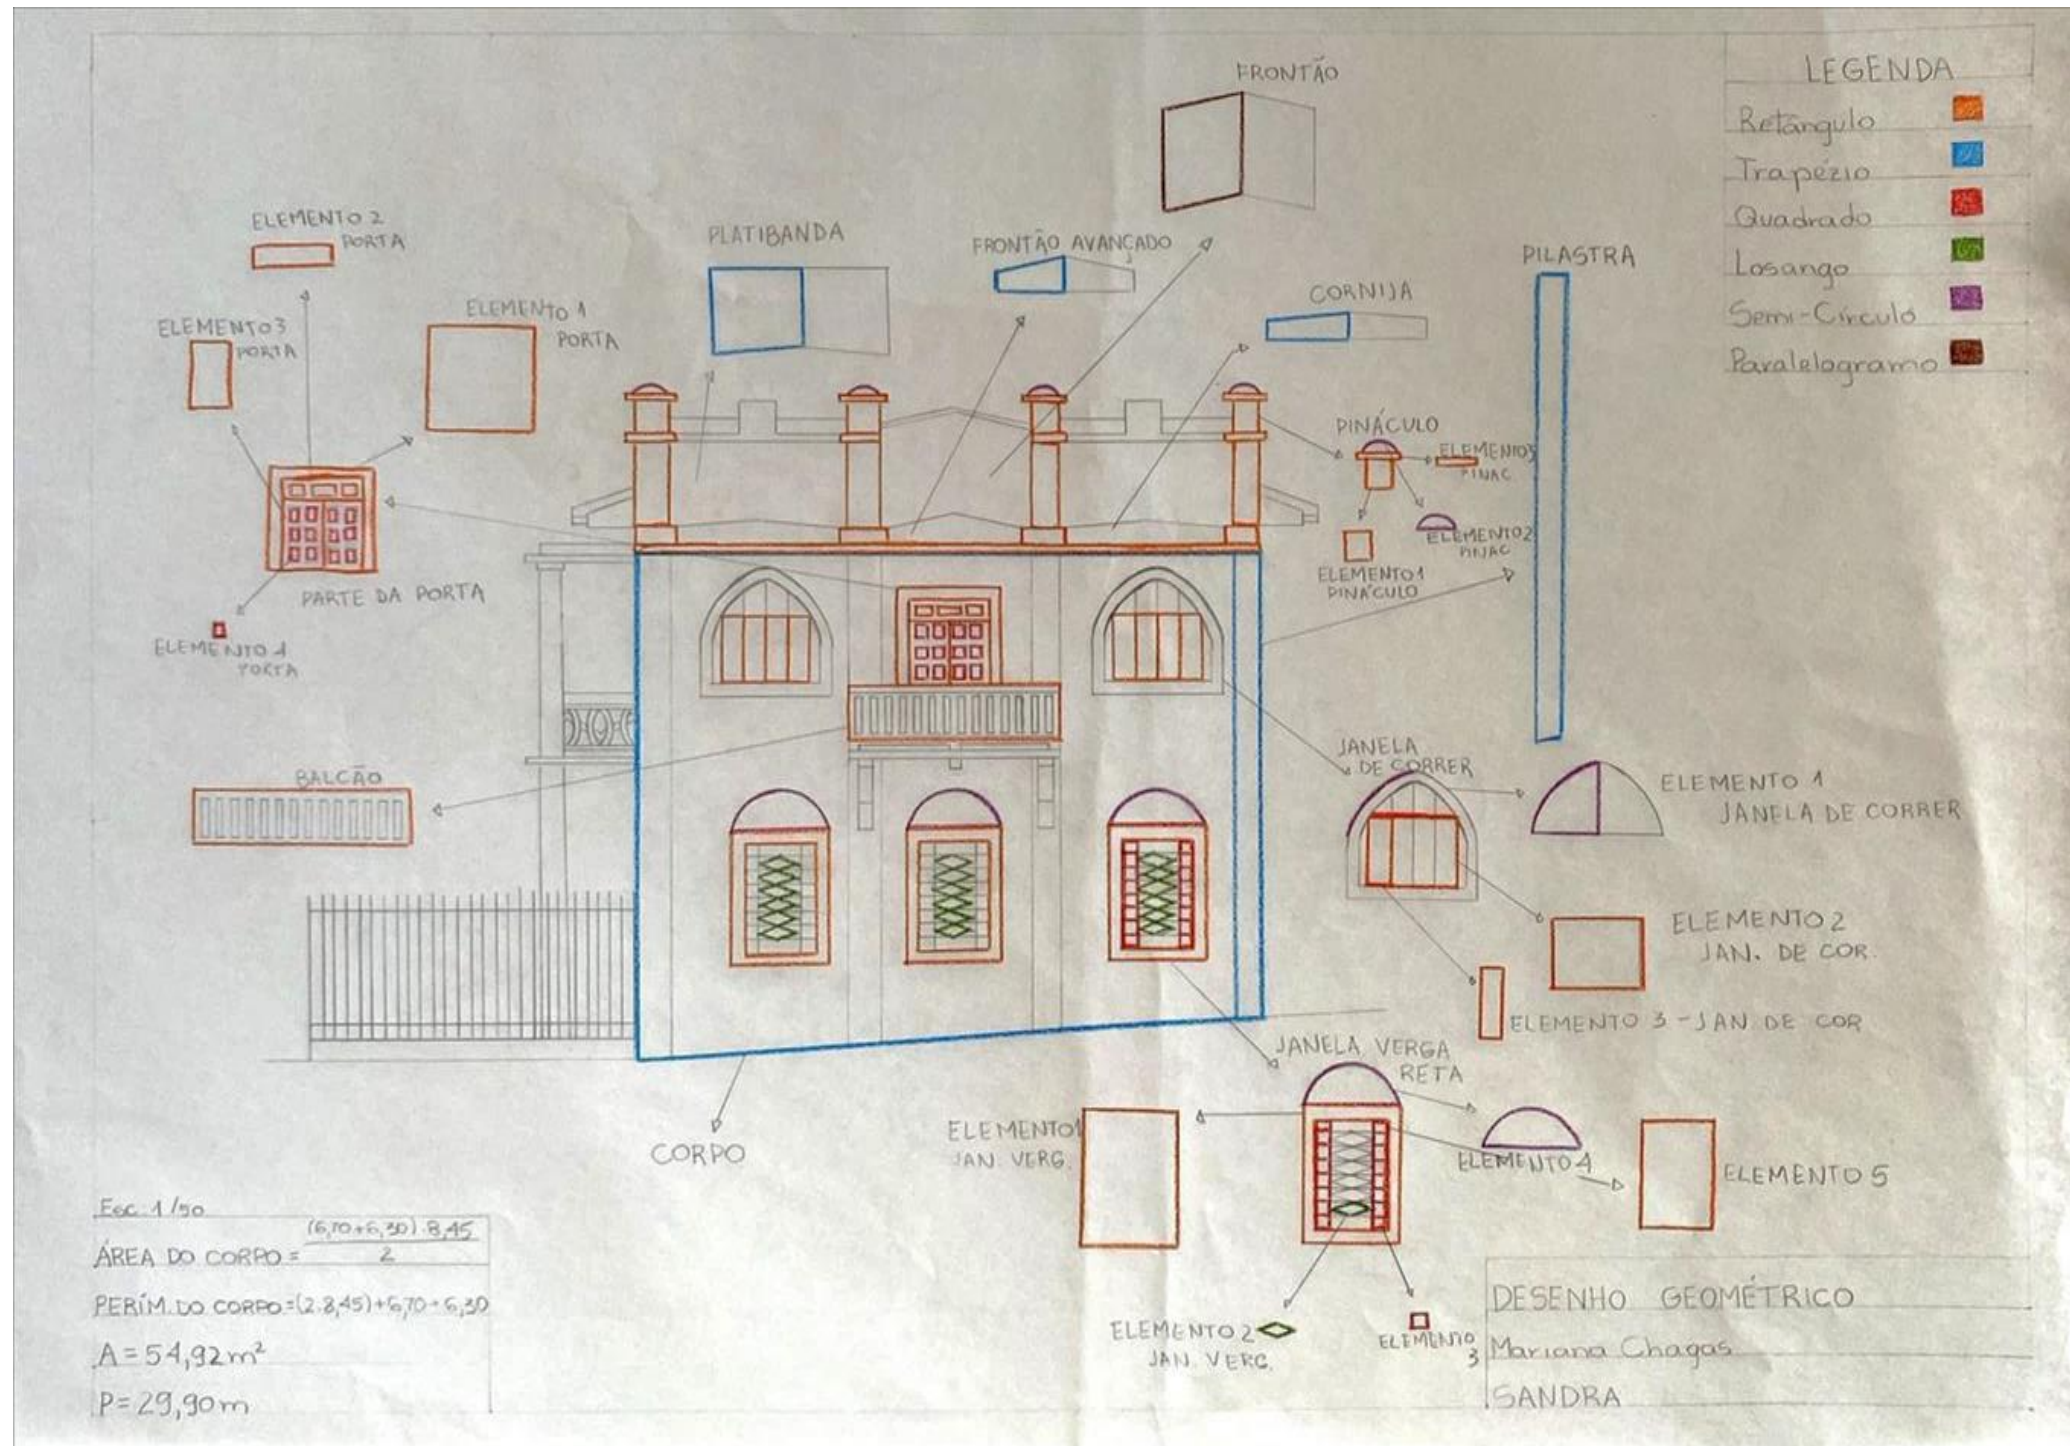 FRONTÃO
LEGENDA
Retângulo
Trapézio
Quadrado
Losango
Semi-Círculo
Paralelogramo
ELEMENTO 2
PORTA
PLATIBANDA
FRONTÃO AVANÇADO
PILASTRA
ELEMENTO 3
PORTA
ELEMENTO 1
PORTA
CORNIJA
PINÁCULO
ELEMENTO 3
PINAC
ELEMENTO 2
PINAC
ELEMENTO 1
PINÁCULO
PARTE DA PORTA
ELEMENTO 4
PORTA
BALCÃO
JANELA
DE CORRER
ELEMENTO 1
JANELA DE CORRER
ELEMENTO 2
JAN. DE COR.
ELEMENTO 3 - JAN. DE COR
JANELA VERGA
RETA
CORPO
ELEMENTO 1
JAN. VERG.
ELEMENTO 4
ELEMENTO 5
ELEMENTO 2
JAN. VERG.
ELEMENTO
3
Esc. 1/50
ÁREA DO CORPO = (6,70+6,30).8,45
2
PERÍM. DO CORPO = (2.8,45)+6,70+6,30
A = 54,92 m²
P = 29,90 m
DESENHO GEOMÉTRICO
Mariana Chagas
SANDRA